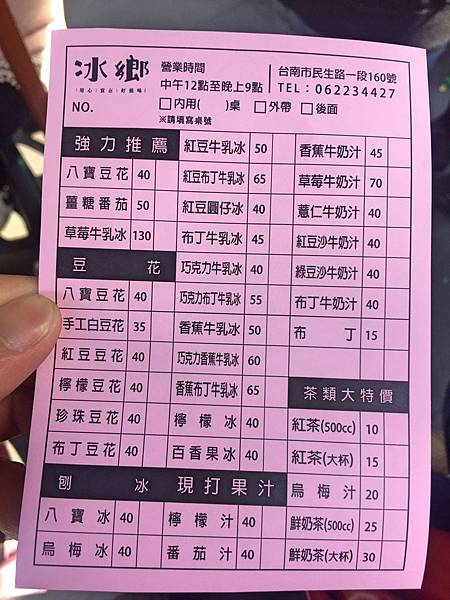 冰鄉
用心|實在|好滋味
營業時間
中午12點至晚上9點
台南市民生路一段160號
TEL：062234427
NO. 內用( )桌 外帶 後面
※請填寫桌號
強力推薦
八寶豆花 40
薑糖番茄 50
草莓牛乳冰 130
豆花
八寶豆花 40
手工白豆花 35
紅豆豆花 40
檸檬豆花 40
珍珠豆花 40
布丁豆花 40
刨冰
八寶冰 40
烏梅冰 40
紅豆牛乳冰 50
紅豆布丁牛乳冰 65
紅豆圓仔冰 40
布丁牛乳冰 45
巧克力牛乳冰 40
巧克力布丁牛乳冰 55
香蕉牛乳冰 50
巧克力香蕉牛乳冰 60
香蕉布丁牛乳冰 65
檸檬冰 40
百香果冰 40
現打果汁
檸檬汁 40
番茄汁 40
香蕉牛奶汁 45
草莓牛奶汁 70
薏仁牛奶汁 40
紅豆沙牛奶汁 40
綠豆沙牛奶汁 40
布丁牛奶汁 40
布丁 15
茶類大特價
紅茶(500cc) 10
紅茶(大杯) 15
烏梅汁 20
鮮奶茶(500cc) 25
鮮奶茶(大杯) 30